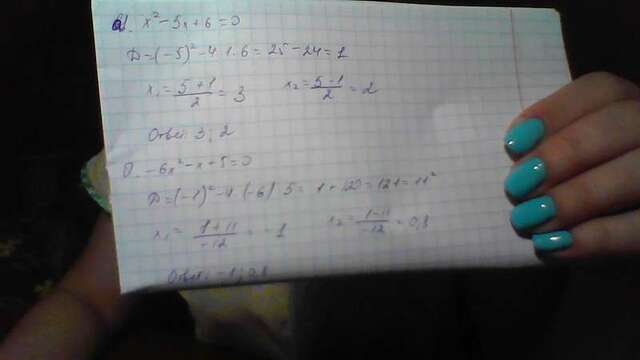 а. x² - 5x + 6 = 0
D = (-5)² - 4 · 1 · 6 = 25 - 24 = 1
x₁ = (5 + 1)/2 = 3 x₂ = (5 - 1)/2 = 2
Ответ: 3; 2
б. -6x² - x + 5 = 0
D = (-1)² - 4 · (-6) · 5 = 1 + 120 = 121 = 11²
x₁ = (1 + 11)/-12 = -1 x₂ = (1 - 11)/-12 = 0,8
Ответ: -1; 0,8